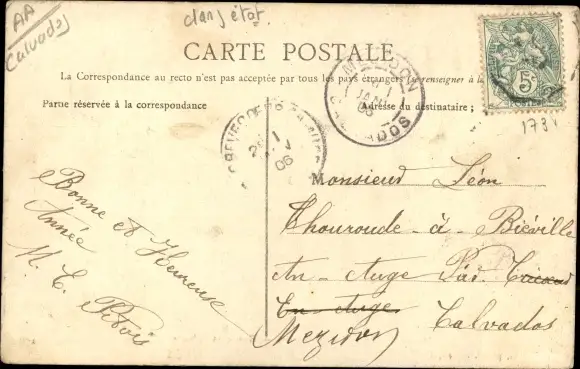 AA
Calvados
dans état.
CARTE POSTALE
La Correspondance au recto n'est pas acceptée par tous les pays étrangers (se renseigner à la
Partie réservée à la correspondance
Adresse du destinataire ;
5c
POSTES
MEZIDON
1
JANV
06
CALVADOS
1
06
173
Bonne et Heureuse
Année
M. E. Pitois
Monsieur Léon
Thouroude - à - Biéville
en - Auge Par.
en - Auge.
Mezidon Calvados